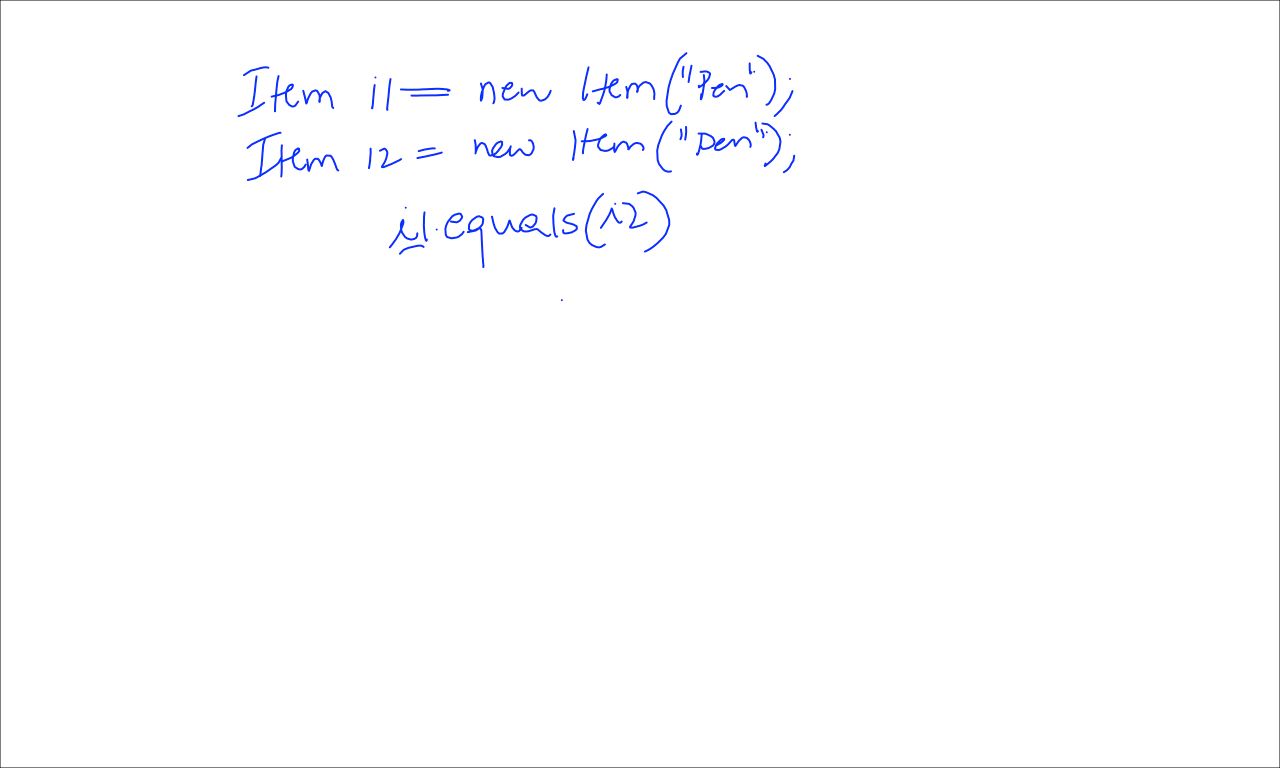 Item i1 = new Item("Pen");
Item i2 = new Item("Pen");
i1.equals(i2)